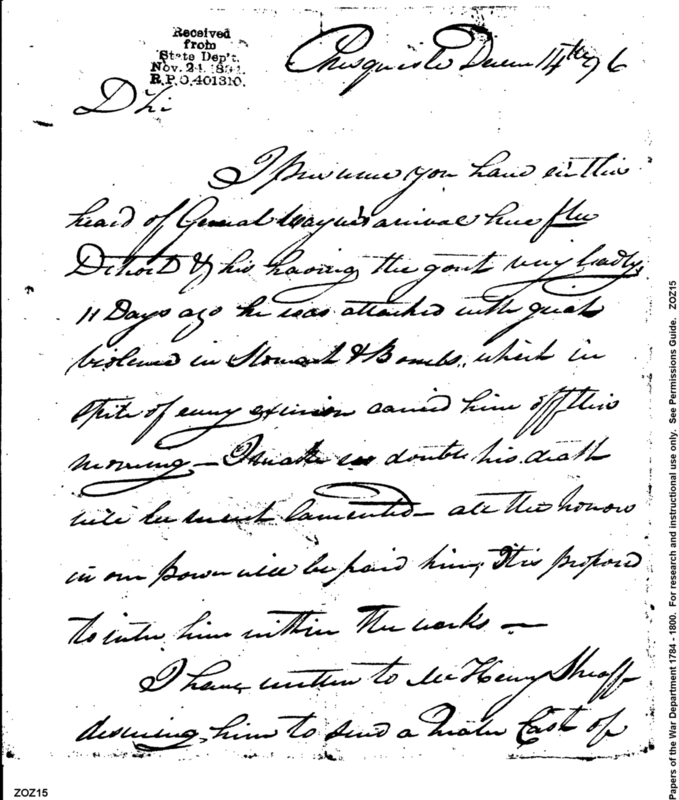 Received
from
State Dep't.
Nov. 24. 189
R.P.O. 401310.
Presquisle Decem 14th 96
D Sir
I presume you have ere this
heard of General Wayne's arrival here
Detroit & his having the gout very badly,
11 Days ago he was attacked with great
violence in Stomach & Bowels, which in
spite of every exertion carried him off this
morning — I make no doubt his death
will be much lamented — all the honors
in our power will be paid him, It is proposed
to inter him within the works —
I have written to Mr Henry Sheaff
desiring him to send a Cask of
Papers of the War Department 1784 - 1800. For research and instructional use only. See Permissions Guide. ZOZ15
ZOZ15